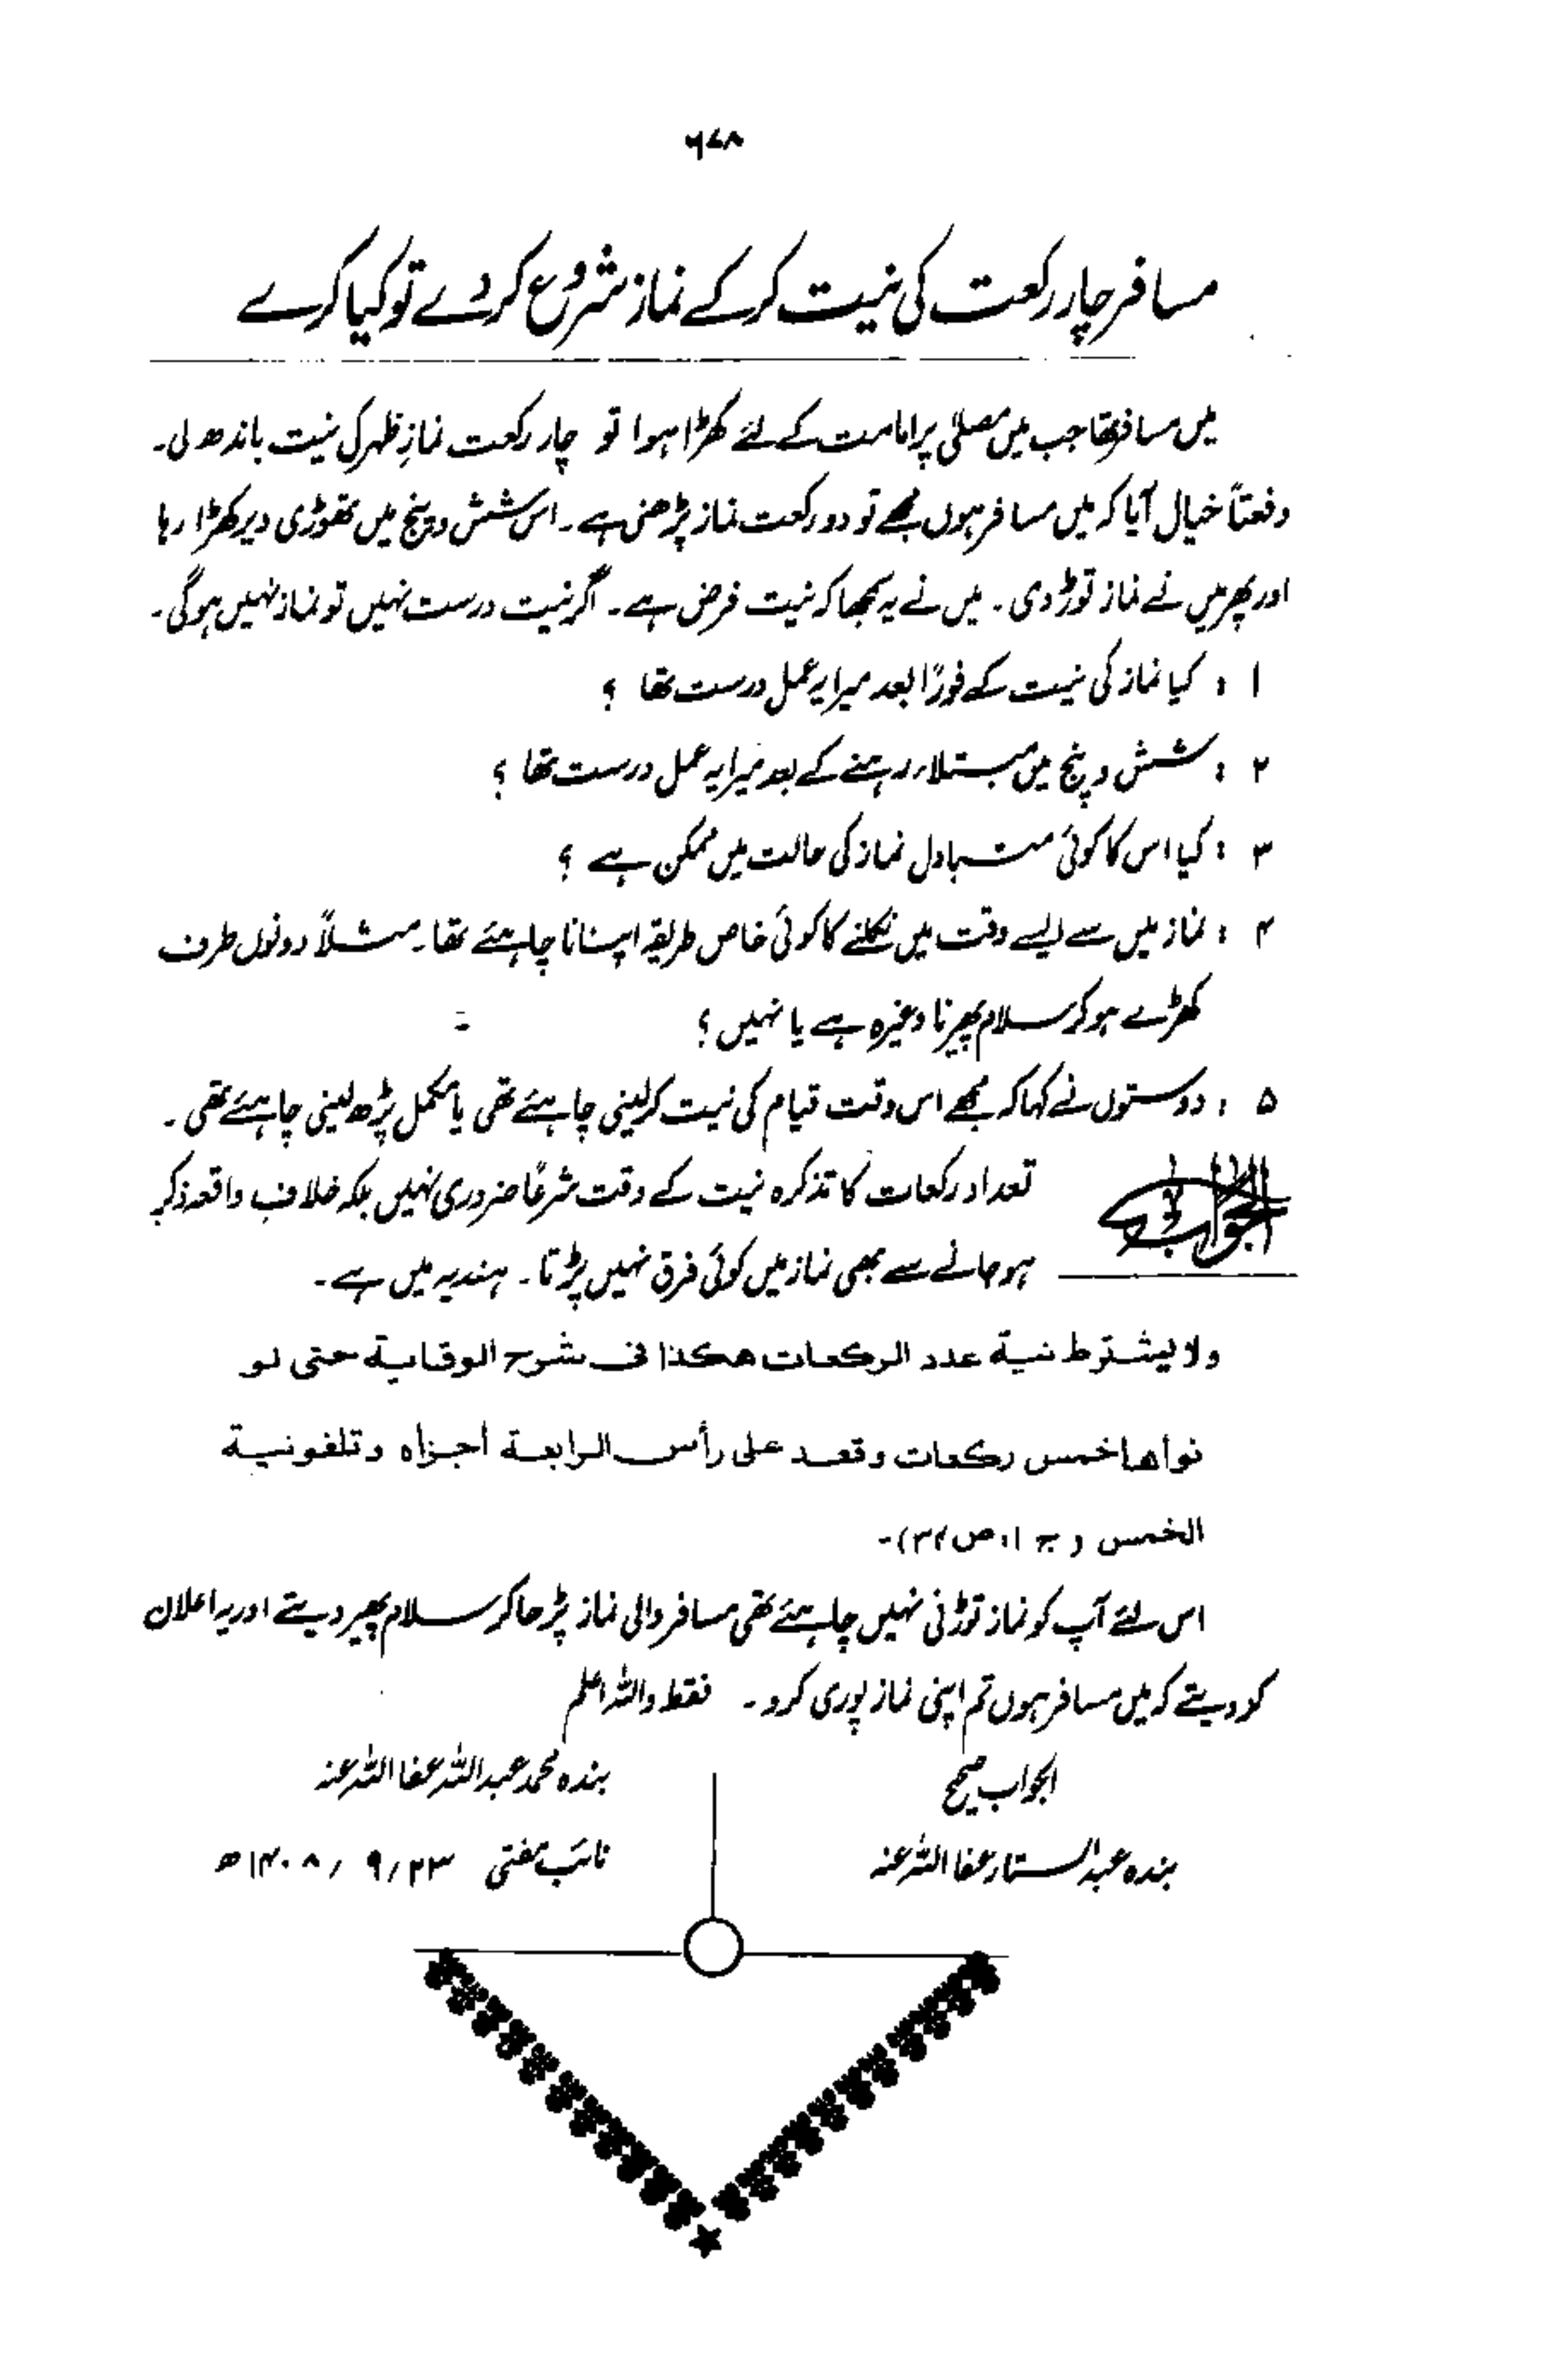 ۶۷۸
مسافر چار رکعت کی نیت کر کے نماز شروع کر دے تو کیا کرے
میں مسافر تھا جب میں مصلی پر امامت کے لئے کھڑا ہوا تو چار رکعت نمازِ ظہر کی نیت باندھ لی۔
دفعتاً خیال آیا کہ میں مسافر ہوں مجھے تو دو رکعت نماز پڑھنی ہے۔ اس شش و پنج میں تھوڑی دیر کھڑا رہا
اور پھر میں نے نماز توڑ دی۔ میں نے یہ سمجھا کہ نیت فرض ہے۔ اگر نیت درست نہیں تو نماز نہیں ہوگی۔
۱ : کیا نماز کی نیت کے فوراً بعد میرا یہ عمل درست تھا ؟
۲ : شش و پنج میں مبتلاء رہنے کے بعد میرا یہ عمل درست تھا ؟
۳ : کیا اس کا کوئی متبادل نماز کی حالت میں ممکن ہے ؟
۴ : نماز میں سے ایسے وقت میں نکلنے کا کوئی خاص طریقہ اپنانا چاہئے تھا۔ مثلاً دونوں طرف
کھڑے ہو کر سلام پھیرنا وغیرہ ہے یا نہیں ؟
۵ : دوستوں نے کہا کہ مجھے اس وقت قیام کی نیت کر لینی چاہئے تھی یا مکمل پڑھ لینی چاہئے تھی۔
الجواب تعداد رکعات کا تذکرہ نیت کے وقت شرعاً ضروری نہیں بلکہ خلافِ واقعہ ذکر
ہو جانے سے بھی نماز میں کوئی فرق نہیں پڑتا۔ ہندیہ میں ہے۔
ولا یشترط نیة عدد الرکعات هکذا فی شرح الوقایة حتی لو
نواها خمس رکعات وقعد علی رأس الرابعة أجزاه وتلغو نیة
الخمس (ج ۱، ص ۳۴)۔
اس لئے آپ کو نماز توڑنی نہیں چاہئے تھی مسافر والی نماز پڑھا کر سلام پھیر دیتے اور یہ اعلان
کر دیتے کہ میں مسافر ہوں تم اپنی نماز پوری کرو۔ فقط واللہ اعلم
الجواب صحیح
بندہ عبدالستار عفا اللہ عنہ
بندہ محمد عبداللہ عفا اللہ عنہ
نائب مفتی ۲۳/ ۹/ ۱۴۰۸ھ